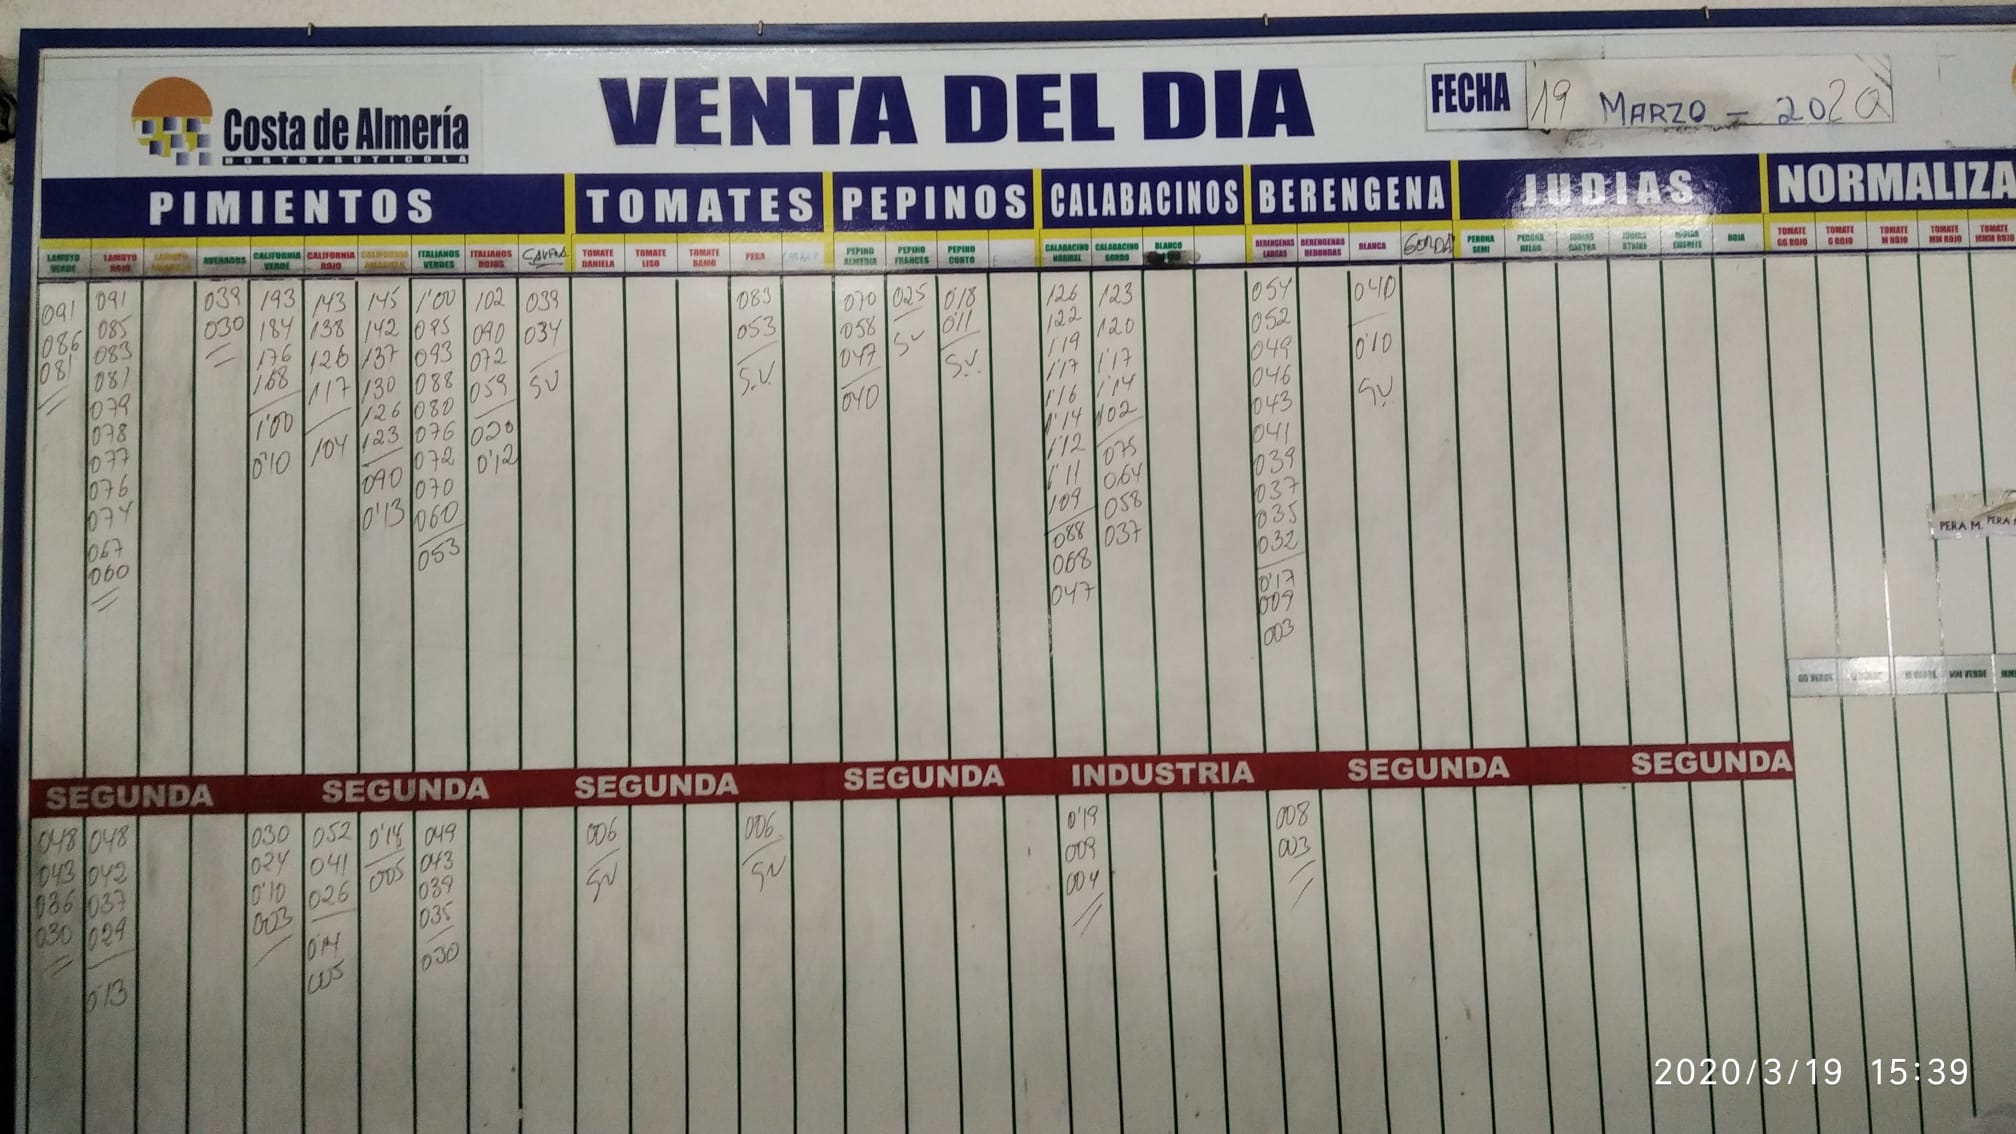 Costa de Almería
HORTOFRUTICOLA
VENTA DEL DIA
FECHA 19 MARZO - 2020
PIMIENTOS TOMATES PEPINOS CALABACINOS BERENGENA JUDIAS NORMALIZA
LAMUYO VERDE
LAMUYO ROJO
AVERADOS
CALIFORNIA VERDE
CALIFORNIA ROJO
CALIFORNIA AMARILLO
ITALIANOS VERDES
ITALIANOS ROJOS
TOMATE DANIELA
TOMATE LISO
TOMATE RAMO
PERA
PEPINO ALMERIA
PEPINO FRANCES
PEPINO CORTO
CALABACINO NORMAL
CALABACINO GORDO
BLANCO
BERENGENAS LARGAS
BERENGENAS REDONDAS
BLANCA
GORDA
PERONA SEMI
ROJA
TOMATE GG ROJO
TOMATE G ROJO
TOMATE M ROJO
TOMATE MM ROJO
TOMATE MMM ROJO
091
086
081
091
085
083
081
079
078
077
076
074
067
060
039
030
193
184
176
168
1'00
0'10
143
138
126
117
104
145
142
137
130
126
123
090
0'13
1'00
095
093
088
080
076
072
070
060
053
102
090
072
059
020
0'12
039
034
SV
083
053
S.V.
070
058
047
040
025
SV
0'18
0'11
S.V.
126
122
119
1'17
1'16
1'14
1'12
1'11
109
088
068
047
123
120
1'17
1'14
102
075
064
058
037
054
052
049
046
043
041
039
037
035
032
0'17
009
003
040
0'10
SV
PERA M. PERA
GG VERDE
M VERDE MM VERDE
SEGUNDA SEGUNDA SEGUNDA SEGUNDA INDUSTRIA SEGUNDA SEGUNDA
048
043
036
030
048
042
037
029
0'13
030
024
0'10
003
052
041
026
0'14
005
0'18
005
049
043
039
035
030
006
SV
006
SV
0'19
009
004
008
003
2020/3/19 15:39